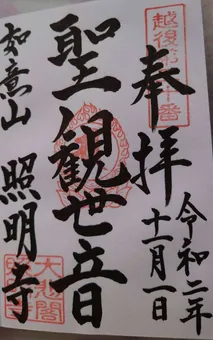 奉拝
令和二年
十一月一日
聖観世音
如意山 照明寺
大悲閣